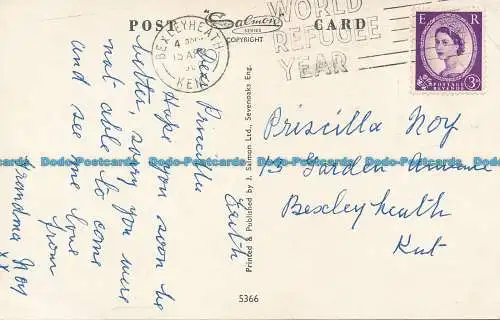 POST CARD
Salmon
SERIES
COPYRIGHT
BEXLEYHEATH
KENT
WORLD
REFUGEE
YEAR
E R
POSTAGE
REVENUE
3D
Erith
Dear Priscilla
Hope you soon be
better, sorry you were
not able to come
and see me love
from
Grandma Noy
xx
Printed & Published by J. Salmon Ltd., Sevenoaks Eng.
Priscilla Noy
13 Garden Avenue
Bexleyheath
Kent
5366
Dodo-Postcards Dodo-Postcards Dodo-Postcards Dodo-Postcards Dodo-Postcards